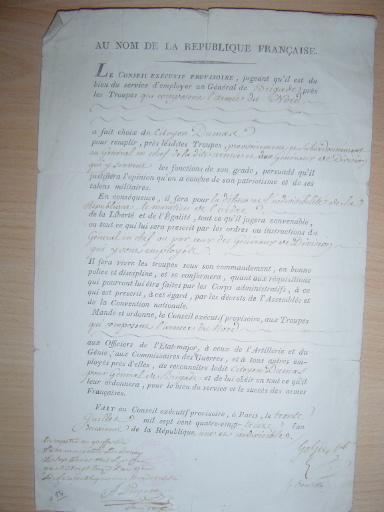 AU NOM DE LA RÉPUBLIQUE FRANÇAISE.
LE CONSEIL EXÉCUTIF PROVISOIRE, jugeant qu'il est du
bien du service d'employer un Général de Brigade près
les Troupes qui composent l'armée du Nord
a fait choix du Citoyen Dumas
pour remplir, près lesdites Troupes provisoirement, et subordonnément
au Général en chef de la dite armée aux Généraux de Division
qui y servent les fonctions de son grade, persuadé qu'il
justifiera l'opinion qu'on a conçue de son patriotisme et de ses
talens militaires.
En conséquence, il fera pour la défense, l'indivisibilité de la
République le maintien de l'ordre
de la Liberté et de l'Égalité, tout ce qu'il jugera convenable,
ou tout ce qui lui sera prescrit par les ordres ou instructions du
Général en chef ou par ceux des Généraux de Division
qui y sont employés
Il fera vivre les troupes sous son commandement, en bonne
police et discipline, et se conformera, quant aux réquisitions
qui pourront lui être faites par les Corps administratifs, à ce
qui est prescrit, à cet égard, par les décrets de l'Assemblée et
de la Convention nationale.
Mande et ordonne, le Conseil exécutif provisoire, aux Troupes
qui composent l'armée du Nord
aux Officiers de l'État-major, à ceux de l'Artillerie et du
Génie, aux Commissaires des Guerres, et à tous autres em-
ployés près d'elles, de reconnaître ledit Citoyen Dumas
pour Général de Brigade et de lui obéir en tout ce qu'il
leur ordonnera, pour le bien du service et le succès des armes
Françaises.
FAIT au Conseil exécutif provisoire, à Paris, le trente
Juillet mil sept cent quatre-vingt-treize l'an
deuxième de la République, une et indivisible